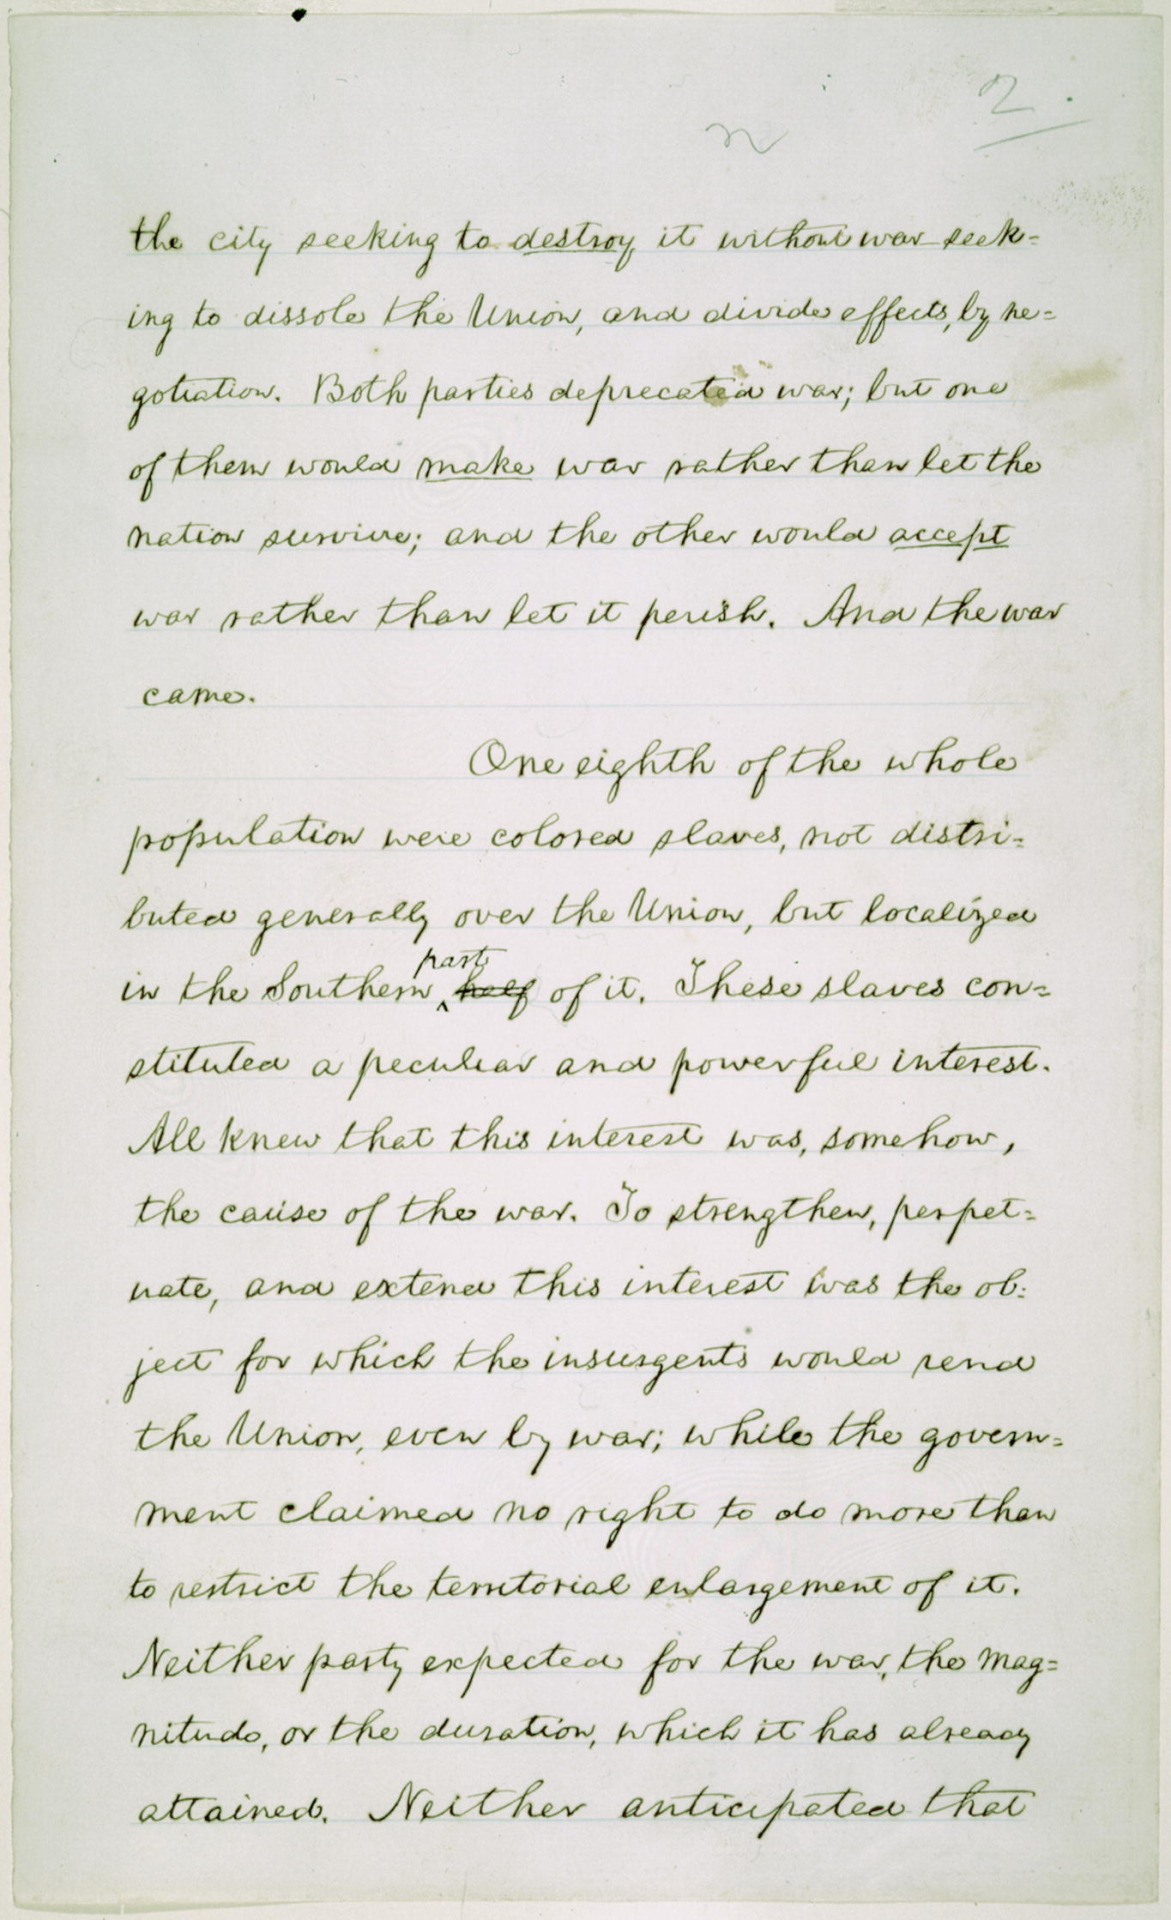 2.
n
the city seeking to destroy it without war—seek=
ing to dissole the Union, and divide effects, by ne=
gotiation. Both parties deprecated war; but one
of them would make war rather than let the
nation survive; and the other would accept
war rather than let it perish. And the war
came.
One eighth of the whole
population were colored slaves, not distri=
buted generally over the Union, but localized
part
in the Southern half of it. These slaves con=
stituted a peculiar and powerful interest.
All knew that this interest was, somehow,
the cause of the war. To strengthen, perpet=
uate, and extend this interest was the ob=
ject for which the insurgents would rend
the Union, even by war; while the govern=
ment claimed no right to do more than
to restrict the territorial enlargement of it.
Neither party expected for the war, the mag=
nitude, or the duration, which it has already
attained. Neither anticipated that